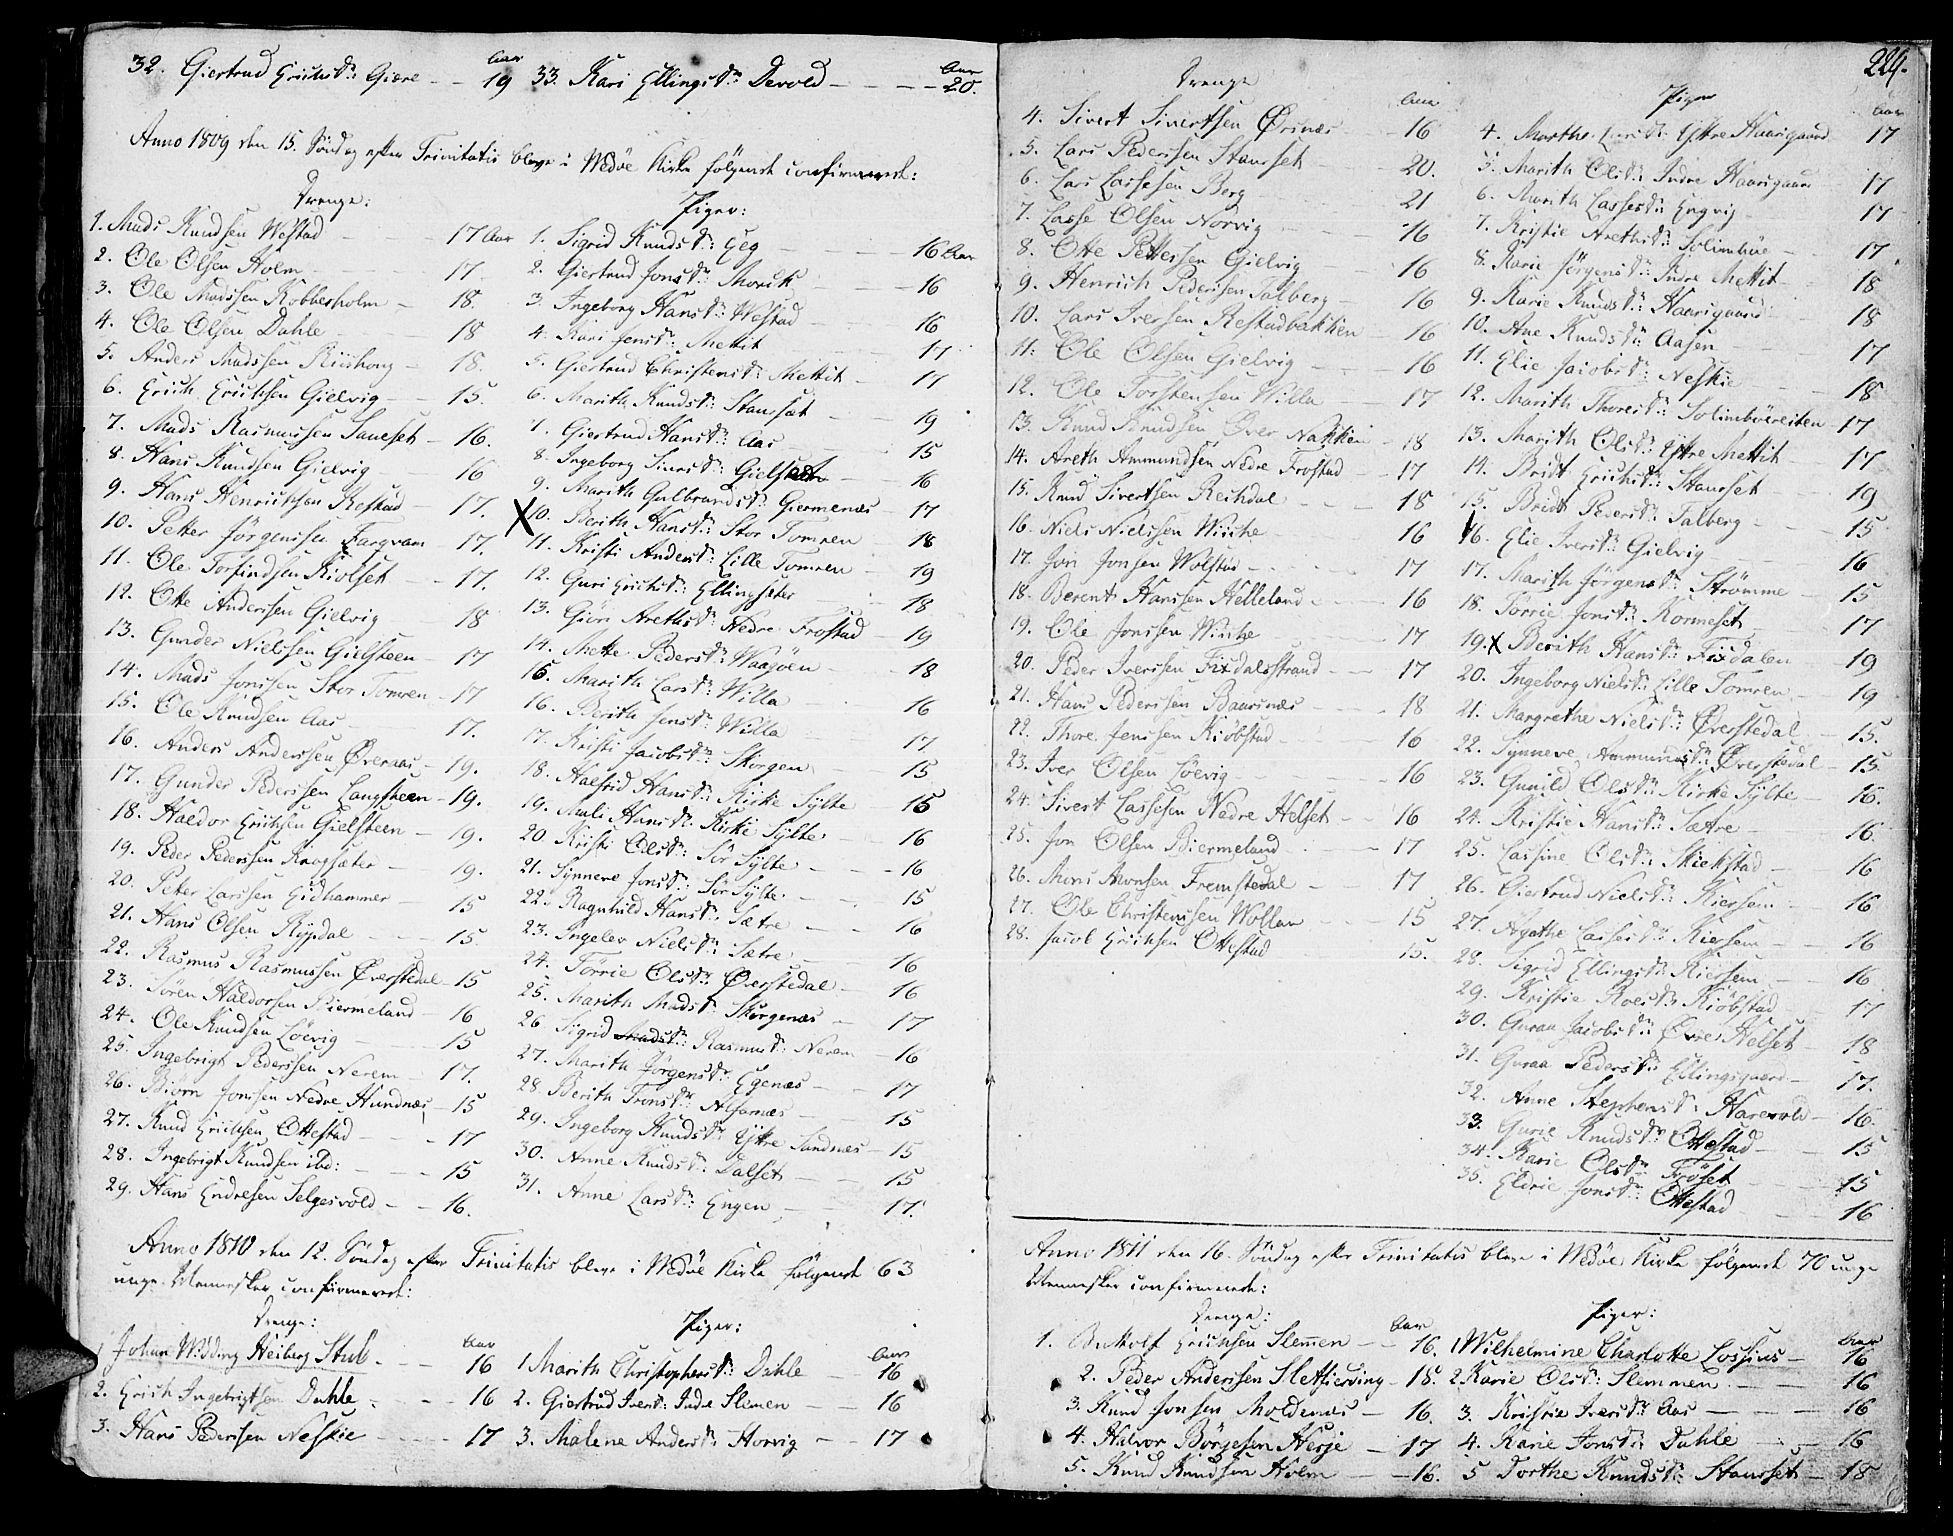 32. Giertrud Erichsdr: Giære - - Aar 19
33. Kari Ellingsdr: Devold - - - - Aar 20.
Anno 1809 den 15. Söndag efter Trinitatis bleve i Wedöe Kirke følgende confirmerede:
Drenge:
1. Mads Knudsen Westad - - 17 Aar
2. Ole Olsen Holm - - 17
3. Ole Madssen Kobbesholm - 18.
4. Ole Olsen Dahle - 18
5. Anders Madssen Riishoug - 18.
6. Erich Erichsen Gielvig - 15.
7. Mads Rasmussen Saueset - 16.
8. Hans Knudsen Gielvig - 16
9. Hans Henrichsen Restad - 17.
10. Petter Jörgenssen Fargvam - 17.
11. Ole Torfindsen Kiolset - - 17.
12. Otte Anderssen Gielvig - 18
13. Gunder Nielssen Gielsteen - 17
14. Mads Jonssen Stor Tomren - 17
15. Ole Knudsen Aas - - 17.
16. Anders Anderssen Øveraas - 19.
17. Gunder Pederssen Langsteen - 19.
18. Haldor Erichsen Gielsteen - 19.
19. Peder Pederssen Knogsæter - 19.
20. Peter Larssen Eidhammer - 15
21. Hans Olsen Rypdal - - 15.
22. Rasmus Rasmussen Øverstedal - 15
23. Sören Haldorsen Biermeland - 16
24. Ole Knudsen Löevig - - 15
25. Ingebrigt Pederssen Nerem - 17.
26. Biörn Jonssen Nedre Hundnæs - 15
27. Knud Erichsen Ottestad - - 17
28. Ingebrigt Knudsen ibd: - - 15
29. Hans Endresen Selgesvold - - 16.
Piger:
1. Sigrid Knudsdr: Eeg - - 16 Aar
2. Giertrud Jonsdr: Morvik - - 16
3. Ingeborg Hansdr: Westad - 16
4. Kari Jensdr: Mettit - - 17
5. Giertrud Christensdr: Mettit - 17
6. Marith Knudsdr: Staurset - - 19
7. Giertrud Hansdr: Aas - - 15
8. Ingeborg Siversdr: Gielsteen - 16
9. Marith Gulbrandsdr: Giermenæs - 17
X 10. Berith Hansdr: Stor Tomren - 18
11. Kristi Andersdr: Lille Tomren - 19
12. Guri Erichsdr: Ellingsæter - 18
13. Giöri Arethsdr: Nedre Frostad 19
14. Mette Pedersdr: Waagöen - 18
15. Marith Larsdr: Willa - 16
16. Berith Jensdr: Willa - 17
17. Kristi Jacobsdr: Skorgen - 15
18. Halfrid Hansdr: Kirke Sylte 15
19. Mali Hansdr: Kirke Sylte 16
20. Kristi Olsdr: Sör Sylte - - 16
21. Sinneve Jonsdr: Sör Sylte - 15
22. Ragnhild Hansdr: Sætre - - 16
23. Ingelev Nielsdr: Sætre - 16
24. Törrie Olsdr: Øverstedal - 16
25. Marith Madsdr: Skorgenæs - 17
26 Sigrid Madsdr: Rasmusdr: Nerem 16
27. Marith Jörgensdr: Egenæs - - 17
28. Berith Tronsdr: Alfarnæs - - 15
29. Ingeborg Knudsdr: Yttre Sandnæs - 15
30. Anne Knudsdr: Dalset - - 15
31. Anne Larsdr: Engen - - 17.
Anno 1810 den 12. Söndag efter Trinitatis bleve i Wedöe Kirke følgende 63
unge Mennesker confirmerede:
Drenge:
1 Johan Widding Heiberg Stub - - Aar 16
2. Erich Ingebrigtsen Dahle - - 16
3. Hans Pederssen Neskie - - 17
Piger:
1 Marith Christophersdr: Dahle - Aar 16
2. Giertrud Iversdr: Indre Slemen - - 16
3. Malene Andersdr: Horvig - - 17
229.
Drenge
4. Sivert Sivertsen Örinæs - Aar 16
5. Lars Pederssen Staurset - 20.
6. Lars Lassesen Berg - 21
7. Lasse Olsen Norvig - - 16
8. Otte Pettersen Gielvig 16
9. Henrich Pederssen Talberg - 16
10. Lars Iversen Restadbakken - 16
11: Ole Olsen Gielvig - - 16
12. Ole Torstensen Willa 17
13. Knud Knudsen Øver Nakken - 18
14. Areth Ammundsen Nedre Frostad - 17
15. Knud Sivertsen Reihdal - 18
16. Niels Nielssen Wiiche - 16
17. Jon Jonsen Wolstad - - - 17
18. Berent Hanssen Helleland - - 16
19. Ole Jonssen Wiiche - 17
20. Peder Iverssen Fixdalsstrand - - 17
21. Hans Pederssen Baarsnæs - - 18
22. Thore Jenssen Kiöbstad - - 16
23. Iver Olsen Löevig - - - 16
24. Sivert Lassesen Nedre Helset - - 16
25. Jon Olsen Biermeland - - 17
26. Mons Monsen Fremstedal - - 17
27. Ole Christenssen Wollan 15
28. Jacob Erichsen Ottestad 15.
Piger
4. Marthe Larsdr: Yttre Haarsgaard Aar 17
5. Marith Olsdr: Indre Haarsgaard 17
6. Marith Lassesdr: Engvig - 17
7. Kristie Arethsdr: Solimböe - - 17
8. Karie Jörgensdr: Indre Mettit - 18
9. Karie Knudsdr: Haarsgaard 18
10. Ane Knudsdr: Aasen - - 17
11. Elie Jacobsdr: Neskie - 18
12. Marith Thoresdr: Solimböereiten 17
13. Marith Olsdr: Yttre Mettit - 17
14. Bridt Erichsdr: Staurset - - 19
15. Bridt Pedersdr: Talberg - - 15
16. Elie Iversdr: Gielvig - - 16
17. Marith Jörgensdr: Strömme - 15
18. Törrie Jonsdr: Kormeset - 17
19. X Berith Hansdr: Fixdalen - 19
20. Ingeborg Nielsdr: Lille Tomren - 19
21. Margrethe Nielsdr: Øverstedal - 15.
22. Synneve Ammundsdr: Øverstedal - 15.
23. Gunild Olsdr: Kirke Sylte - 16.
24. Kristie Hansdr: Sætre - 16.
25. Lassine Olsdr: Skiekstad - 16
26. Giertrud Nielsdr: Kiersem - - 16
27. Agathe Lassesdr: Kiersem - - 16
28. Sigrid Ellingsdr: Kiersem - - 16
29. Kristie Roesdr: Kiöbstad - - 17
30. Guraa Jacobsdr: Øvre Helset - 18
31. Guraa Pedersdr: Ellingsgaard - 17.
32. Anne Stephensdr: Harevold - 16.
33. Gurie Knudsdr: Ottestad - 15
34. Karie Olsdr: Fröset - - 15
35. Eldrie Jonsdr: Ottestad - 16
Anno 1811 den 16. Söndag efter Trinitatis bleve i Wedöe Kirke følgende 70 unge
Mennesker confirmerede:
Drenge:
1. Erichsen Slemmen - - Aar 16.
2. Peder Anderssen Sletkierving - 18.
3. Knud Jonsen Moldenæs - 16.
4. Halvor Börgesen Hesje - 17
5. Knud Knudsen Holm - - 16.
Piger:
1 Wilhelmine Charlotte Lossius - Aar 16
2. Karie Olsdr: Slemmen - - 16
3. Kristie Iversdr: Aas - - - 16
4. Karie Jonsdr: Dahle - 16
5 Dorthe Knudsdr: Staurset - 18